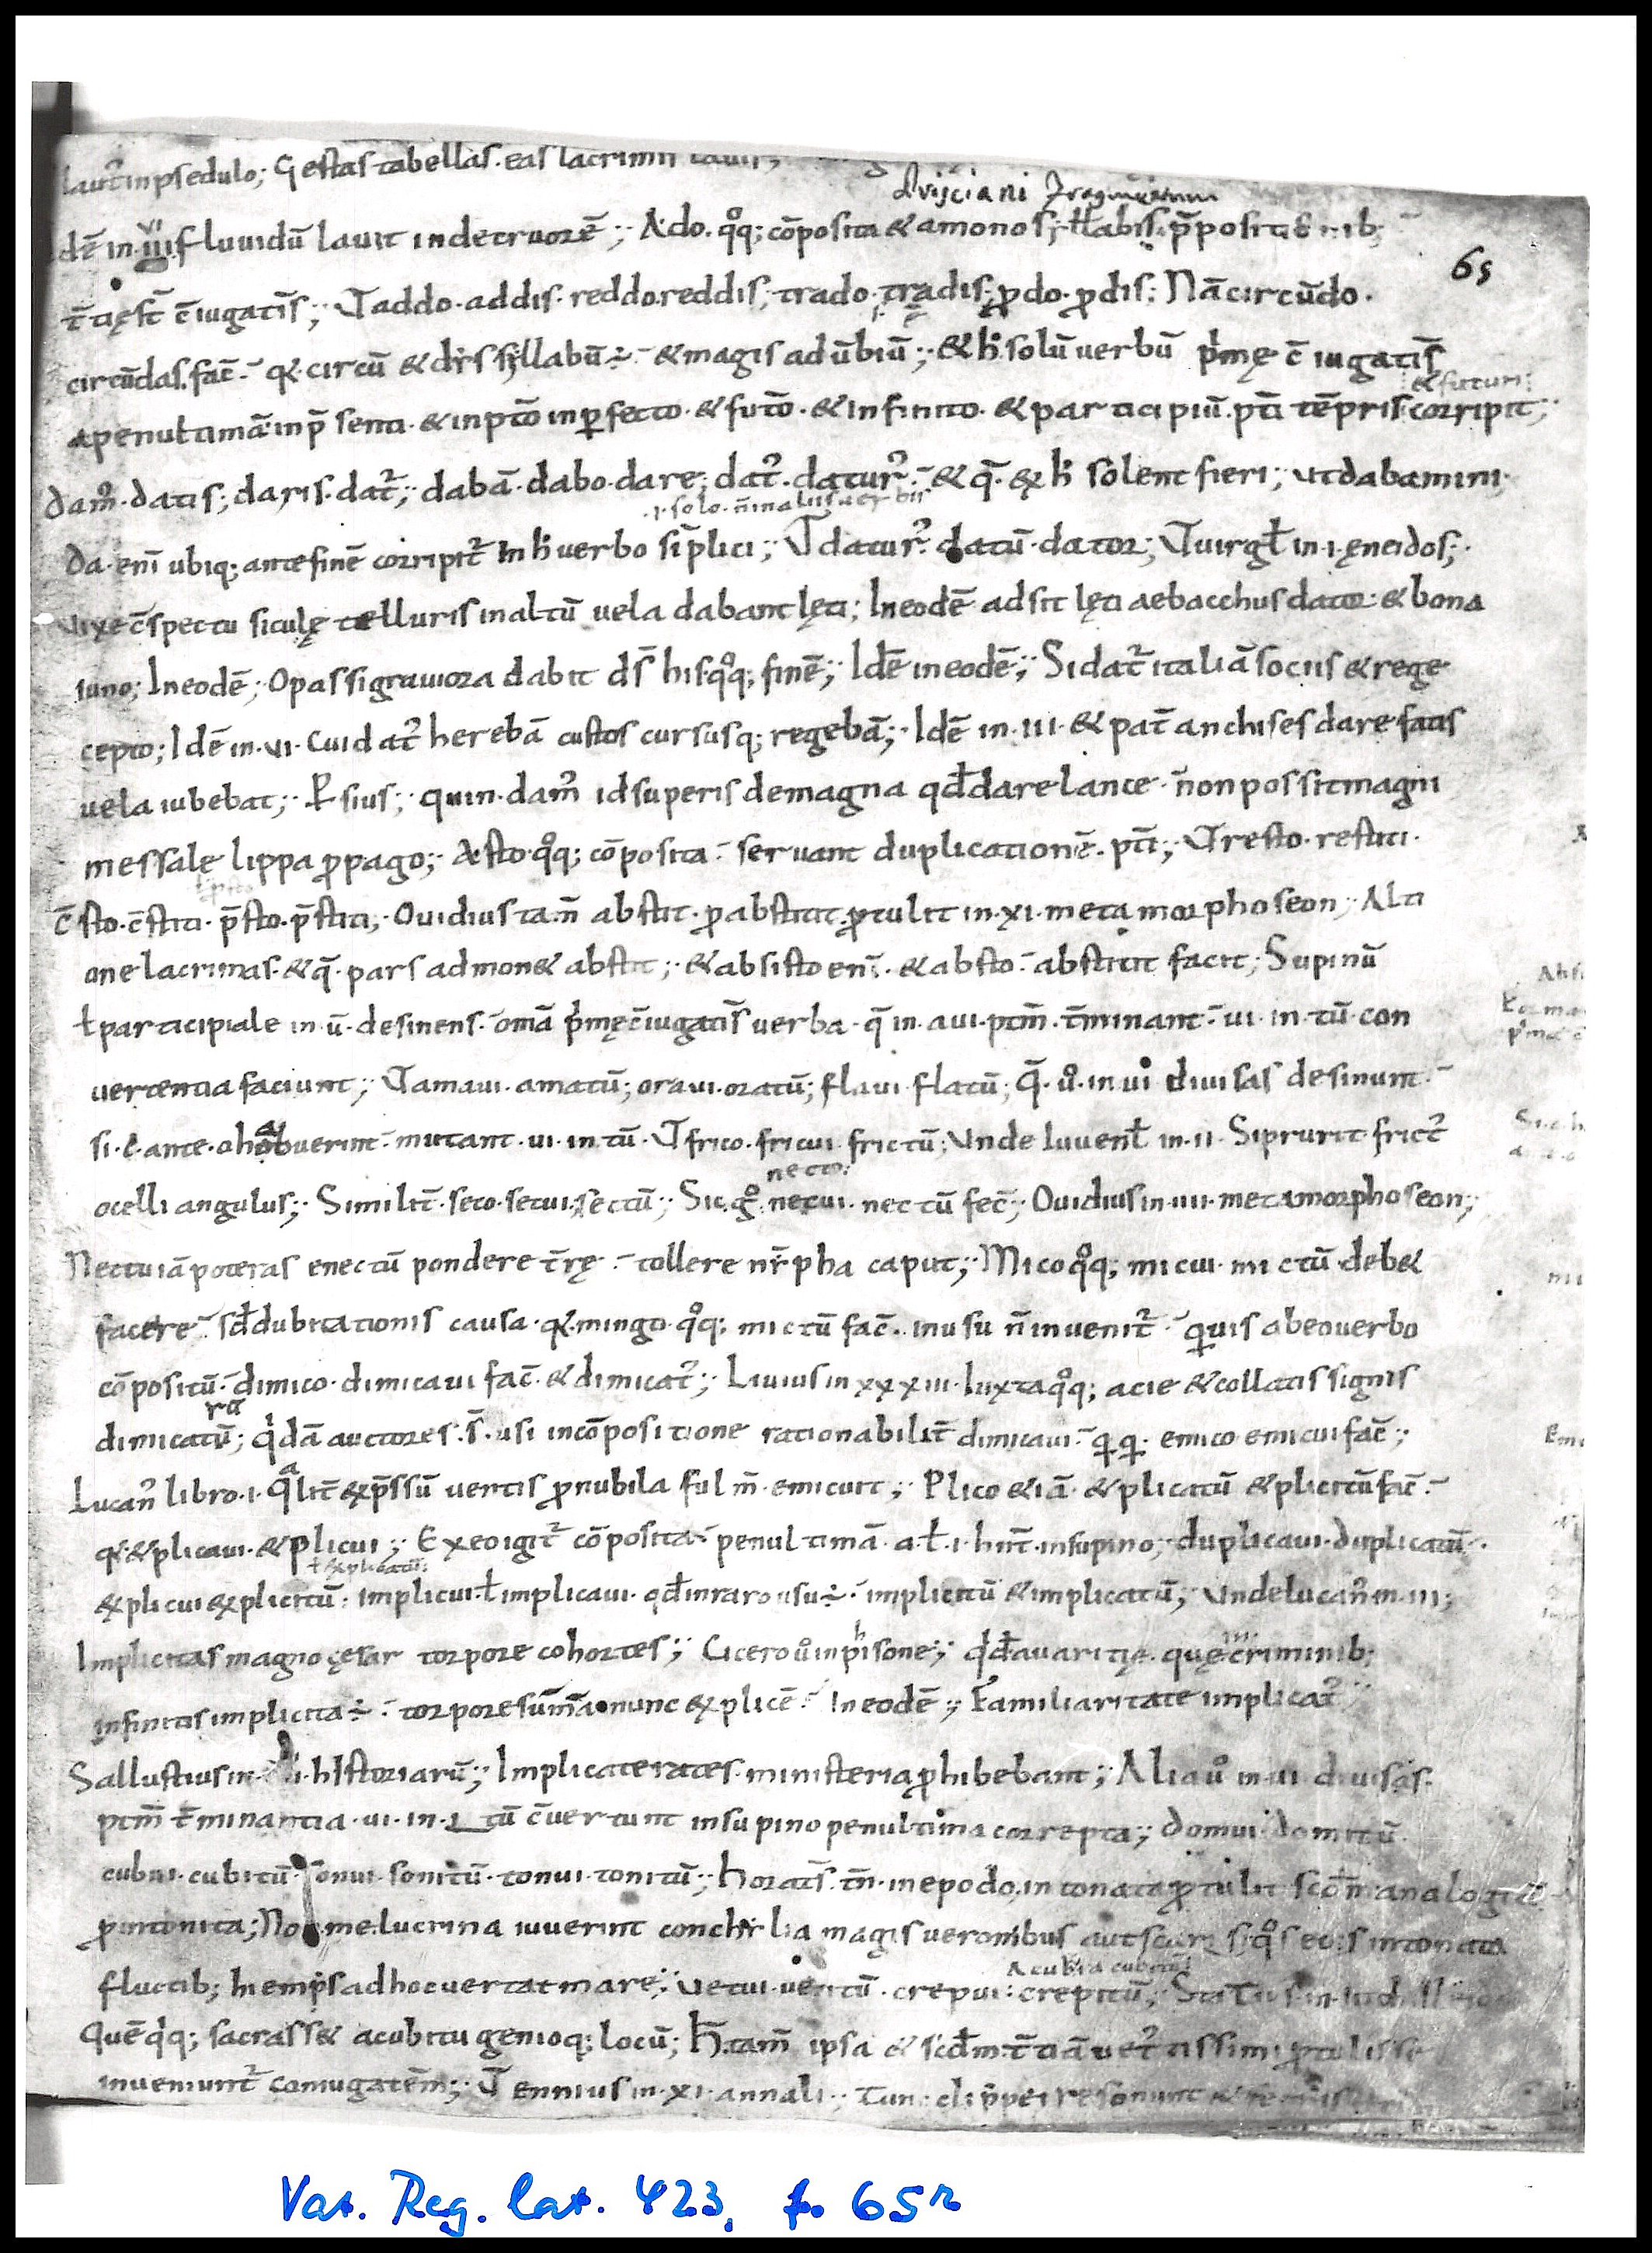 laur̃ inpsedulo; Gestas tabellas. eas lacrimis lauit;
Prisciani Fragmentum
dẽ in. vi. fluuidũ lauit inde cruorẽ; A do. qͦq; cõposita & a monosyllabis p̃positionib;
65
t̃tię st̃ c̃iugatĩs; Ʇ addo. addis. reddo. reddis; trado. tradis; ꝓdo. ꝓdis; Nã circũdo.
circũdas. fac̃. qꝛ circũ & dis syllabũ ÷ & magis aduerbiũ; & h̓ solũ uerbũ p̓mę c̃iugatĩs
& futuri
a penultimã in p̃senti. & in pt̃o inꝑfecto. & fut̃o. & infinito. & participiũ. pt̃i tẽpris corripit;
damꝰ. datis; daris. dat̃; dabã. dabo. dare; datꝰ. daturꝰ. & q̃. ex h̓ solent fieri; ut dabamini.
.i. solo. ñ in aliis uerbis
Da. enĩ ubiq; ante finẽ corripit̃ in h̓ uerbo sĩplici; Ʇ daturꝰ. datũ. dator; Ʇ uirgł in .i. ęneidos;
uix e c̃spectu siculę telluris in altũ uela dabant lęti; In eodẽ adsit lętiae bacchus dator & bona
iuno; In eodẽ; O passi grauiora dabit ds̃ his qͦq; finẽ; Idẽ in eodẽ; Si dat̃ italiã sociis & rege
cepto; Idẽ in. vi. Cui datꝰ herebã custos cursusq; regebã; Idẽ in. iii. & pat̃ anchises dare fatis
uela iubebat; ꝑsius; quin. damꝰ id superis de magna qđ dare lance ñon possit magni
messale lippa ꝓpago; A sto. qͦq; cõposita seruant duplicationẽ. pt̃i; Ʇ resto. restiti.
c̃sto. c̃stiti. p̃sto. p̃stiti; Ouidius tam̃ abstit. ꝓ abstitit ꝓtulit in. xi. metamorphoseon; Alci
one lacrimas. & q̃. pars admon& abstit; & absisto enĩ. & absto abstitit facit; Supinũ
ł participiale in. ũ. desinens. om̃a p̓mę c̃iugatĩs uerba. q̃ in. aui. ptm̃. t̃minant. ui. in. tũ. con
uertentia faciunt; Ʇ amaui. amatũ; oraui. oratũ; flaui. flatũ; q̃. uͦ. in ui diuisas desinunt
si. c. ante. o habuerint mutant. ui. in. tũ. Ʇ frico. fricui. frictũ; Unde Iuuenł in. ii. Si prurit frictꝰ
necto
ocelli angulus; Similit̃. seco. secui. sectũ; Sic gͦ. necui. nectũ fec̃; Ouidius in. iiii. metamorphoseon;
Nec tu iã poteras enectũ pondere t̃rę tollere nympha caput; Mico qͦq; micui. mictũ deb&
facere sđ dubitationis causa. qꝛ mingo. qͦq; mictũ fac̃. in usu ñ inuenit̃ q̃uis ab eo uerbo
cõpositũ dimico. dimicaui fac̃. & dimicatꝰ; Liuius in xxxiii. Iuxta qͦq; acie & collatis signis
dimicatũ; q̓dã auctores. s̃. usi in cõpositione rationabilit̃ dimicaui q̃q̃ emico emicui fac̃;
Lucanꝰ libro. i. q̃lit̃ exp̃ssũ uentis ꝑ nubila fulm̃. emicuit; Plico etiã. & plicatũ & plicitũ fac̃
qꝛ & plicaui. & plicui; Ex eo igit̃ cõposita penultimã. a. ł. i. hn̄t. in supino; duplicaui. duplicatũ.
ł explicatũ
explicui explicitũ; implicui. ł implicaui. qđ in raro usu ÷ implicitũ & implicatũ; Unde lucanꝰ in. iii;
Implicitas magno cęsar torpore cohortes; Cicero uͦ in pisone; qđ auaritię. quę criminib;
infinitis implicita ÷ torpore summa nunc explicẽ In eodẽ; Familiaritate implicatꝰ
Sallustius in. iii. historiarũ; Implicatę rates. ministeria ꝓhibebant; Alia uͦ in. ui. diuisas.
ptm̃ t̃minantia. ui. in. itũ c̃uertunt in supino penultima correpta; domui domitũ
cubui. cubitũ. sonui. sonitũ. tonui. tonitũ; horatĩ. tñ. in epodo. intonata ꝓtulit scđm analogiã
ꝓ intonita; Non me lucrina iuuerint conchylia magis ue rombus aut scari siqͦs eois intonata
A cubũ a cubitũ
fluctib; hiemps ad hoc uertat mare; Uetui. uetitũ. crepui. crepitũ; Statius in. achilleidos
Quẽq̓q; sacrass& acubitu genioq; locũ; H̃ tam̃ ipsa & scđm t̃tiã uetꝰtissimi ꝓtulisse
inueniunt̃ coniugatẽm; Ʇ Ennius in. xi. annali; Tunc clippei resonunt &
Vat. Reg. lat. 423, f. 65r